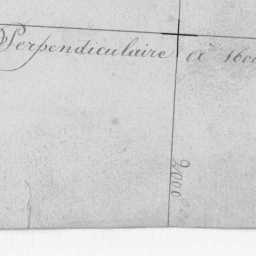 Perpendiculaire à 160
2000